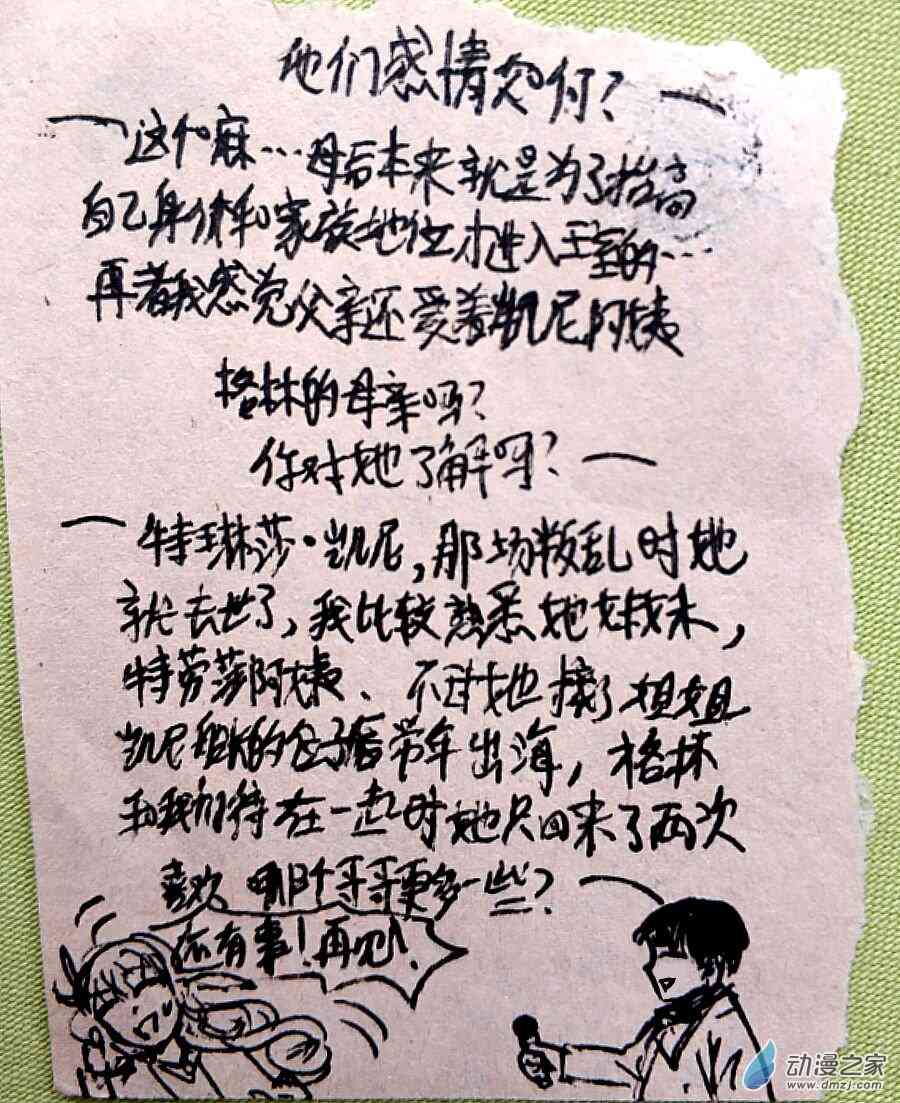 他们感情如何？
这个嘛…母后本来就是为了抬高
自己身价和家族地位才进入王室的…
再者我感觉父亲还爱着凯尼阿姨
格林的母亲吗？
你对她了解吗？
特琳莎·凯尼，那场叛乱时她
就去世了，我比较熟悉她妹妹，
特劳莎阿姨、不过她接了姐姐
凯尼的位子后常年出海，格林
和我们待在一起时她只回来了两次
喜欢哪个哥哥更多一些？
有事！再见！
动漫之家
www.dmzj.com